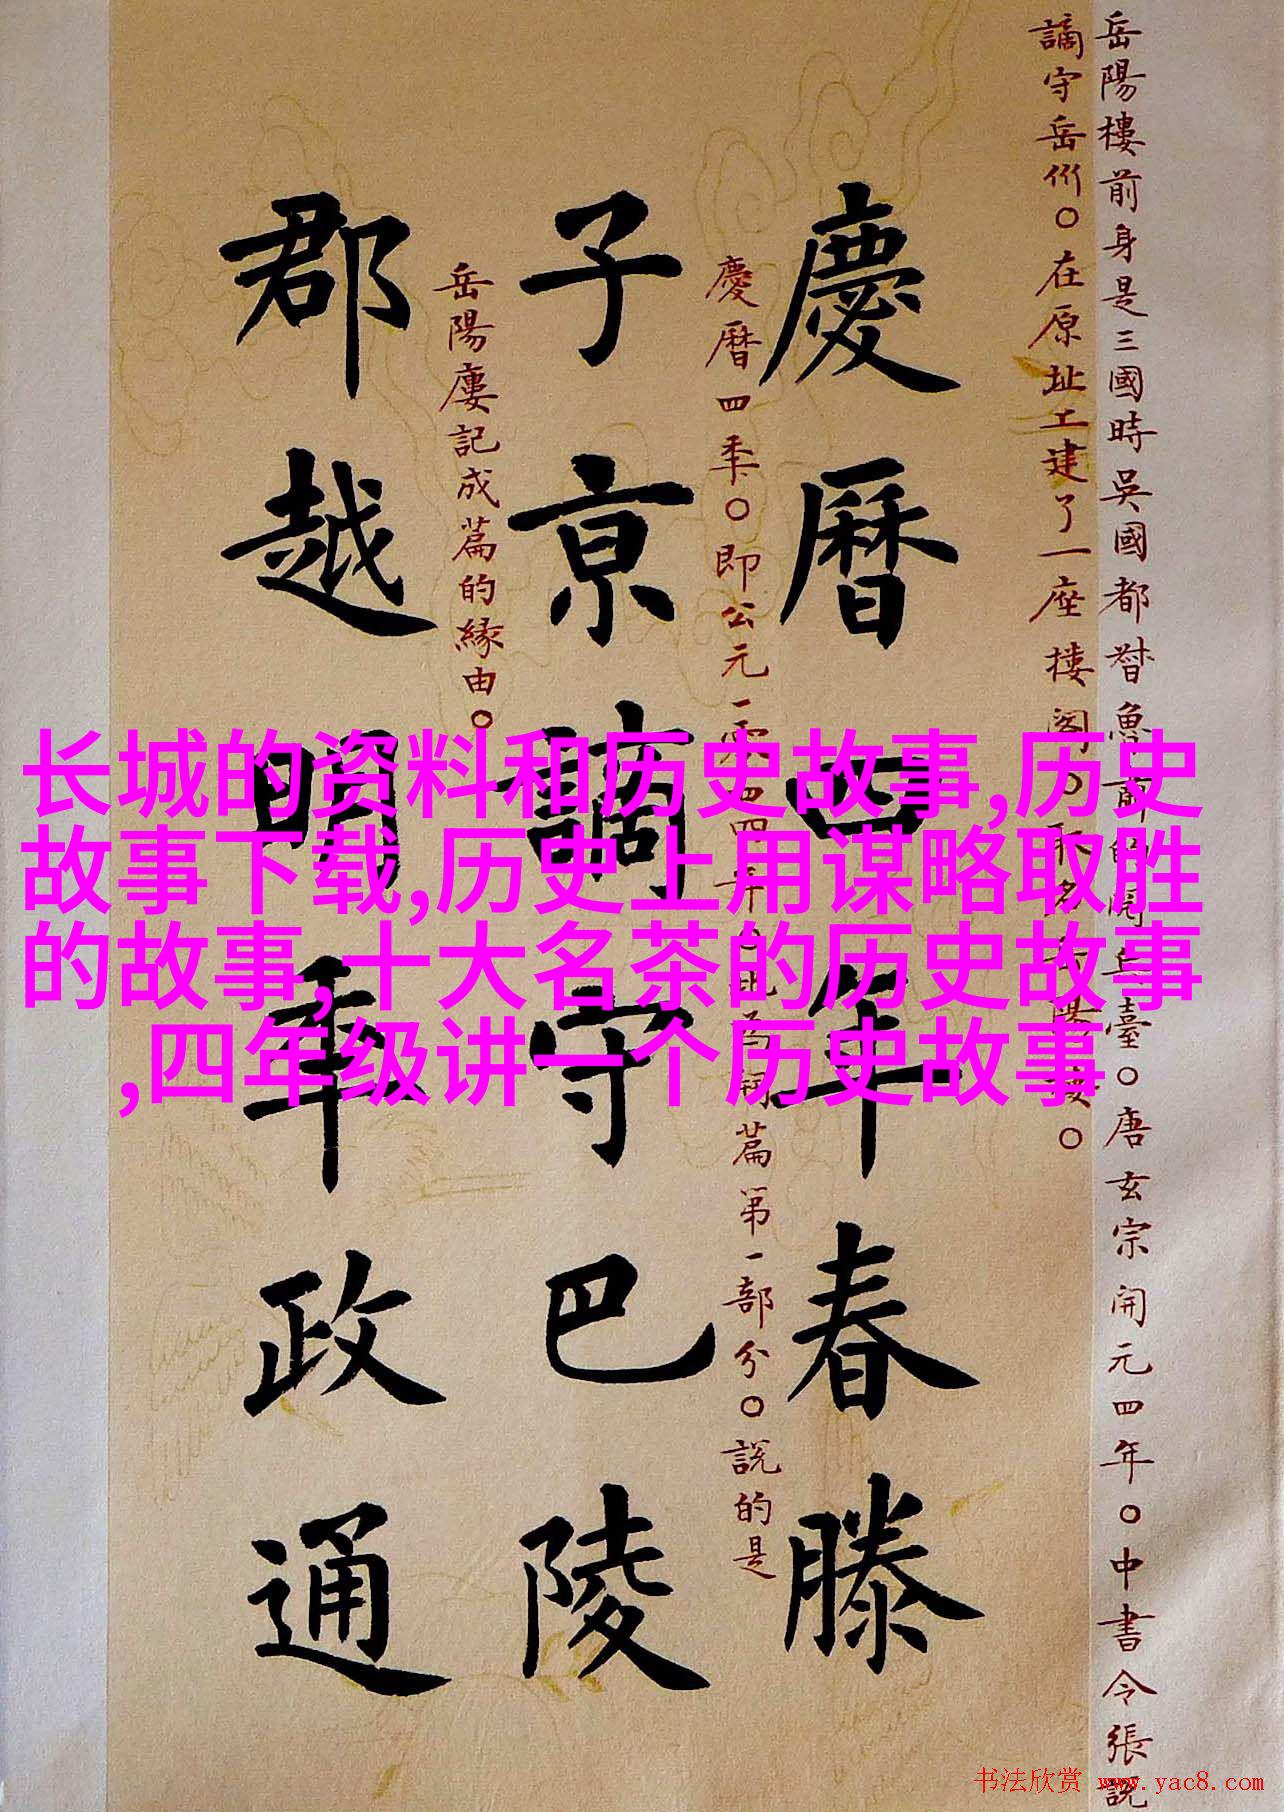 岳陽樓前身是三國時吳國都督魯前的閱兵臺。唐玄宗開元四年。中書令張說
謫守岳州。在原址工建了一座樓阁。取名岳陽樓。
慶曆四年春滕
慶曆四秊。即公元一零四四年。此為詞篇第一部分。說的是
子京謫守巴陵
岳陽廔記成篇的緣由。
郡越明秊政通
长城的资料和历史故事,历史
故事下载,历史上用谋略取胜
的故事,十大名茶的历史故事
,四年级讲一个历史故事
书法欣赏 www.yac8.com